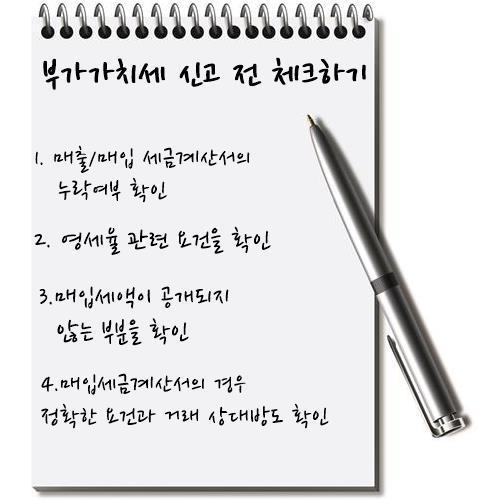 부가가치세 신고 전 체크하기
1. 매출/매입 세금계산서의
누락여부 확인
2. 영세율 관련 요건을 확인
3.매입세액이 공개되지
않는 부분을 확인
4.매입세금계산서의 경우
정확한 요건과 거래 상대방도 확인